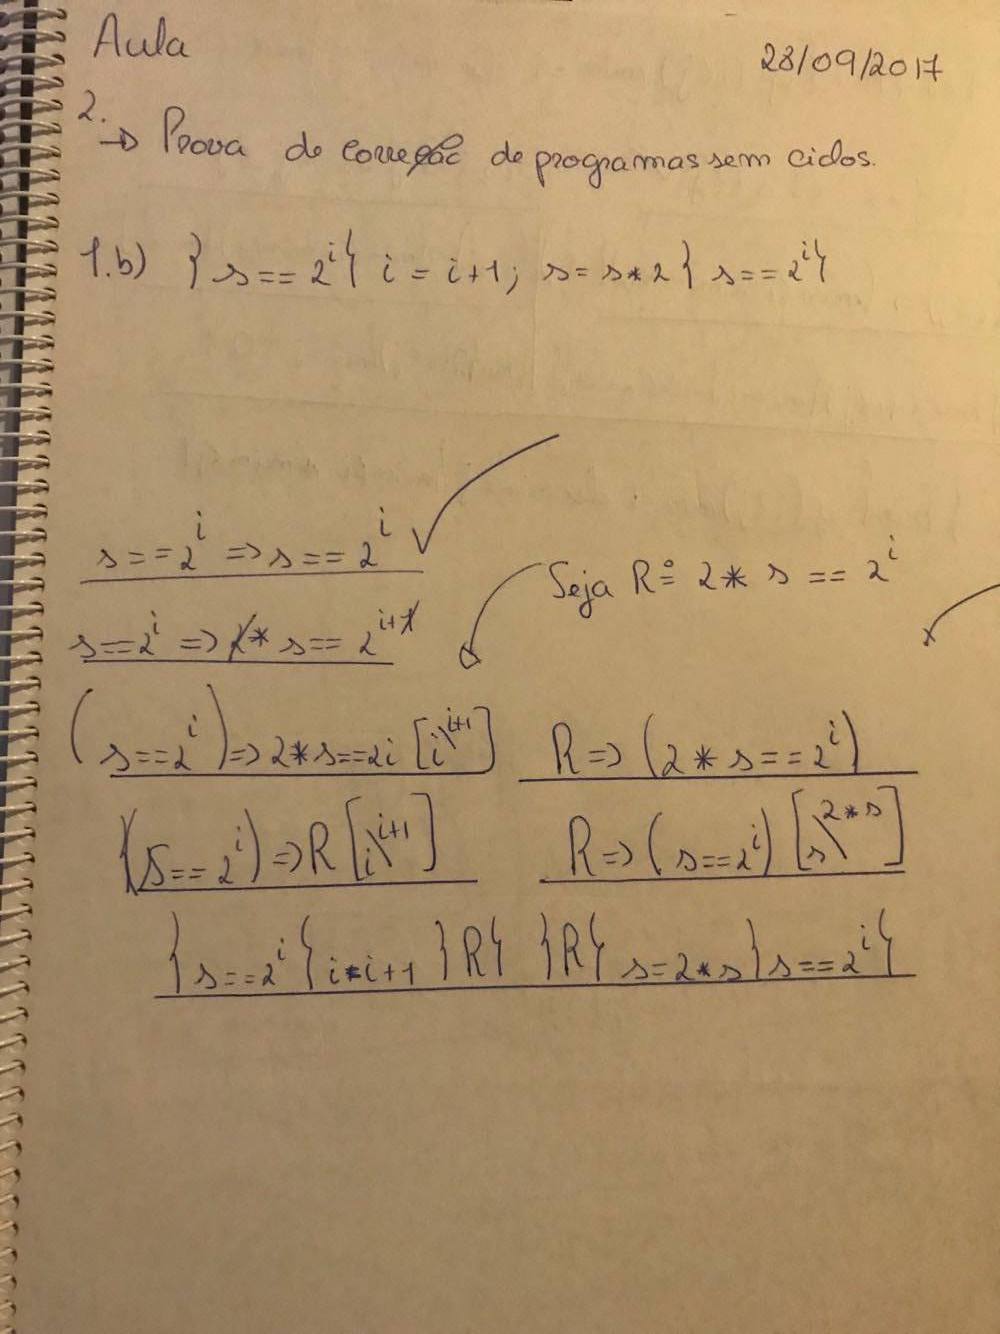 Aula
28/09/2017
2.
→ Prova de correção de programas sem ciclos.
1.b) } s == 2^i { i = i+1; s = s * 2 } s == 2^i {
s == 2^i => s == 2^i ✓
Seja R ≐ 2 * s == 2^i
s == 2^i => 2 * s == 2^{i+1}
(s == 2^i) => 2 * s == 2i [i\i+1]
R => (2 * s == 2^i)
(s == 2^i) => R [i\i+1]
R => (s == 2^i) [s\2*s]
} s == 2^i { i = i+1 } R { } R { s = 2 * s } s == 2^i {